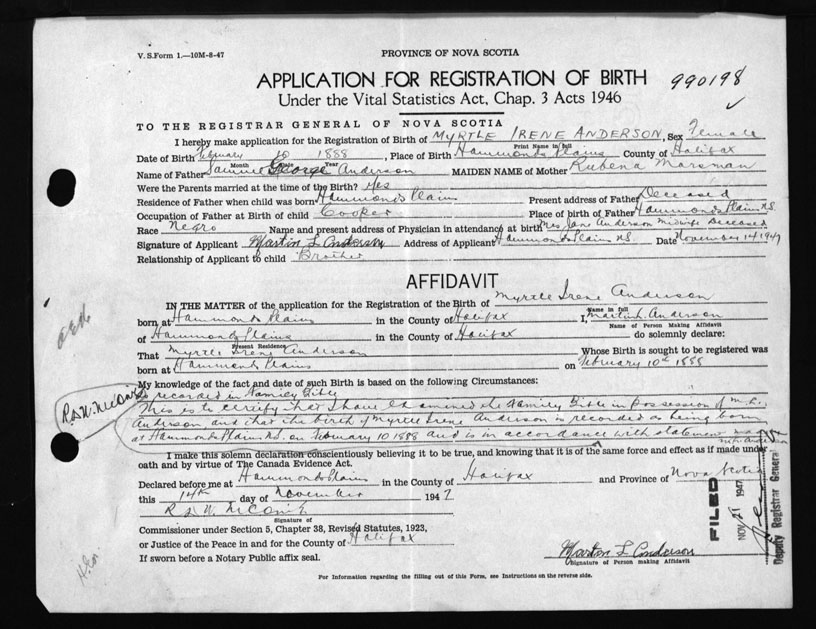 V. S. Form 1.—10M-8-47
PROVINCE OF NOVA SCOTIA
APPLICATION FOR REGISTRATION OF BIRTH
990198
Under the Vital Statistics Act, Chap. 3 Acts 1946
TO THE REGISTRAR GENERAL OF NOVA SCOTIA
I hereby make application for the Registration of Birth of MYRTLE IRENE ANDERSON, Sex Female
Print Name in full
Date of Birth February 10 1888, Place of Birth Hammonds Plains County of Halifax
Month Date Year
Name of Father Samuel George Anderson MAIDEN NAME of Mother Rubena Marsman
Were the Parents married at the time of the Birth? Yes
Residence of Father when child was born Hammonds Plains Present address of Father Deceased
Occupation of Father at Birth of child Cooper Place of birth of Father Hammonds Plains N.S.
Race Negro Name and present address of Physician in attendance at birth Mrs Jane Anderson Midwife Deceased
Signature of Applicant Martin L Anderson Address of Applicant Hammonds Plains N.S. Date November 14 1947
Relationship of Applicant to child Brother
AFFIDAVIT
IN THE MATTER of the application for the Registration of the Birth of Myrtle Irene Anderson
Name in full
born at Hammonds Plains in the County of Halifax I, Martin L. Anderson
Name of Person Making Affidavit
of Hammonds Plains in the County of Halifax do solemnly declare:
Present Residence
That Myrtle Irene Anderson Whose Birth is sought to be registered was
born at Hammonds Plains on February 10th 1888
My knowledge of the fact and date of such Birth is based on the following Circumstances:
as recorded in Family Bible
This is to certify that I have examined the Family Bible in possession of M. L.
Anderson and that the birth of Myrtle Irene Anderson is recorded as being born
at Hammonds Plains N.S. on February 10 1888 and is in accordance with statement
I make this solemn declaration conscientiously believing it to be true, and knowing that it is of the same force and effect as if made under
oath and by virtue of The Canada Evidence Act.
Declared before me at Hammonds Plains in the County of Halifax and Province of Nova Scotia
this 14th day of November 1947
Signature of
Commissioner under Section 5, Chapter 38, Revised Statutes, 1923,
or Justice of the Peace in and for the County of Halifax
If sworn before a Notary Public affix seal.
Martin L Anderson
Signature of Person making Affidavit
For Information regarding the filling out of this Form, see Instructions on the reverse side.
FILED
NOV 21 1947
Deputy Registrar General